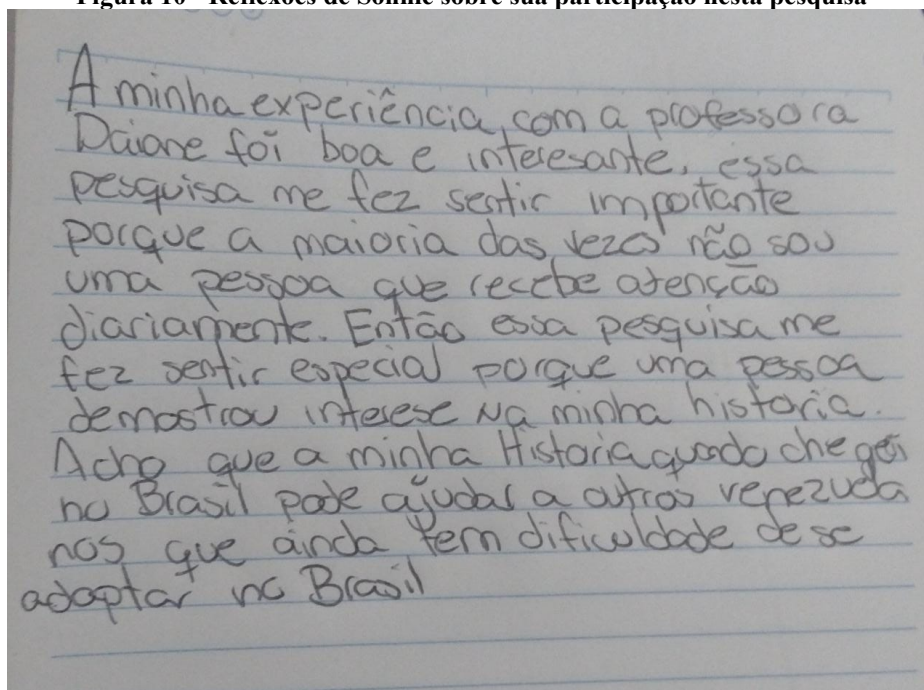 Figura 10 - Reflexões de Sonine sobre sua participação nesta pesquisa
A minha experiência, com a professora
Daiane foi boa e interesante, essa
pesquisa me fez sentir importante
porque a maioria das vezes não sou
uma pessoa que recebe atenção
diariamente. Então essa pesquisa me
fez sentir especial porque uma pessoa
demostrou interese na minha historia.
Acho que a minha Historia quando chegei
no Brasil pode ajudar a outros venezuela
nos que ainda tem dificuldade de se
adaptar no Brasil